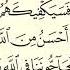 فَسَيَكْفِيكَهُمُ
أَحْسَنُ مِنَ ٱللَّهِ